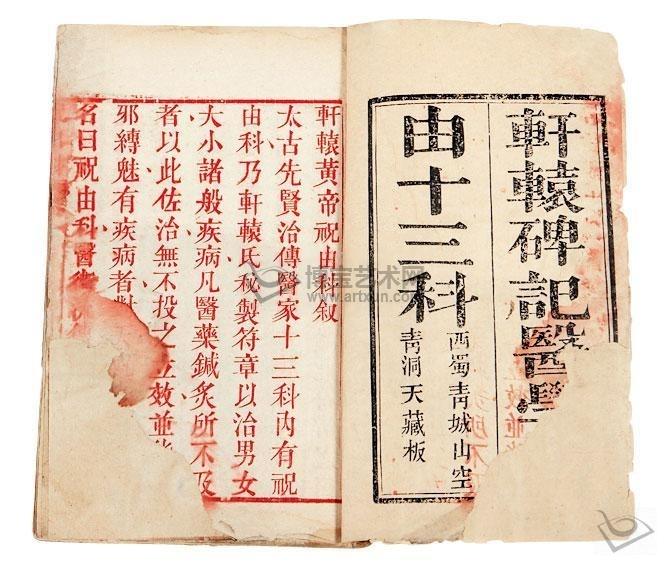 軒轅碑記醫
由十三科
西蜀青城山空
青洞天藏板
軒轅黃帝祝由科叙
太古先賢治傳醫家十三科內有祝
由科乃軒轅氏秘製符章以治男女
大小諸般疾病凡醫藥鍼炙所不及
者以此佐治無不投之立效並
邪縛魅有疾病者對
名曰祝由科醫
博宝艺术网
www.artxun.com